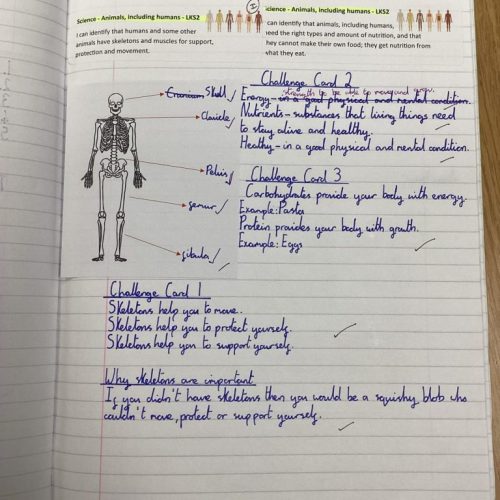 Science - Animals, including humans - LKS2
I can identify that humans and some other
animals have skeletons and muscles for support,
protection and movement.
Science - Animals, including humans - LKS2
I can identify that animals, including humans,
need the right types and amount of nutrition, and that
they cannot make their own food; they get nutrition from
what they eat.
Cranium Skull
Clavicle
Pelvis
femur
fibula
Challenge Card 2
strength to be able to move and grow.
Energy - in a good physical and mental condition.
Nutrients - substances that living things need
to stay alive and healthy.
Healthy - in a good physical and mental condition.
Challenge Card 3
Carbohydrates provide your body with energy.
Example: Pasta
Protein provides your body with growth.
Example: Eggs
Challenge Card 1
Skeletons help you to move.
Skeletons help you to protect yourself.
Skeletons help you to support yourself.
Why skeletons are important
If you didn't have skeletons then you would be a squishy blob who
couldn't move, protect or support yourself.